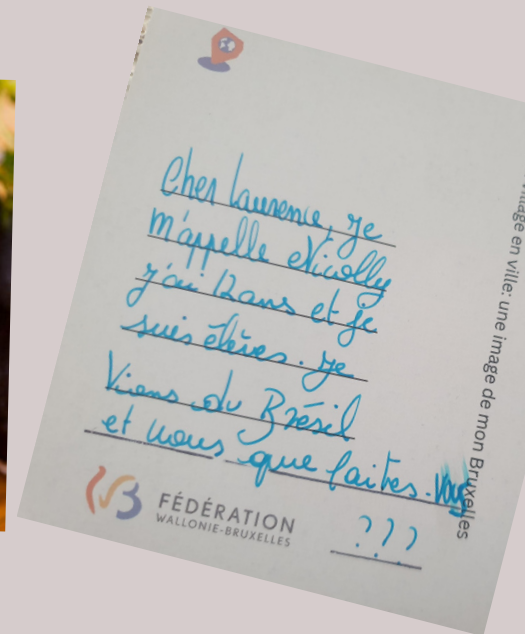 Cher Laurence, je
m'appelle Nicolly
j'ai 12 ans et je
suis élèves. je
Viens du Brésil
et vous que faites-vous
???
FÉDÉRATION
WALLONIE-BRUXELLES
village en ville: une image de mon Bruxelles